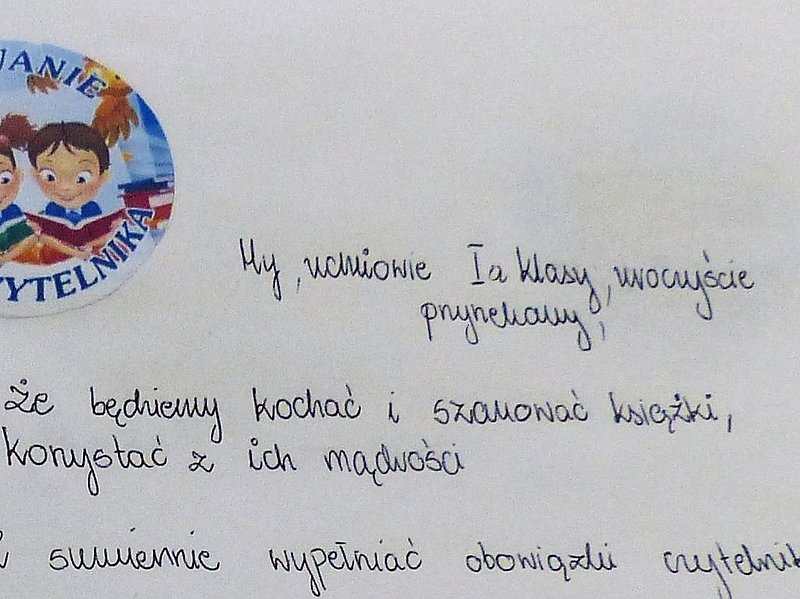 WANIE
YTELNIKA
My, uczniowie Ia klasy, uroczyście
przyrzekamy,
że będziemy kochać i szanować książki,
korzystać z ich mądrości
i sumiennie wypełniać obowiązki czytelnik